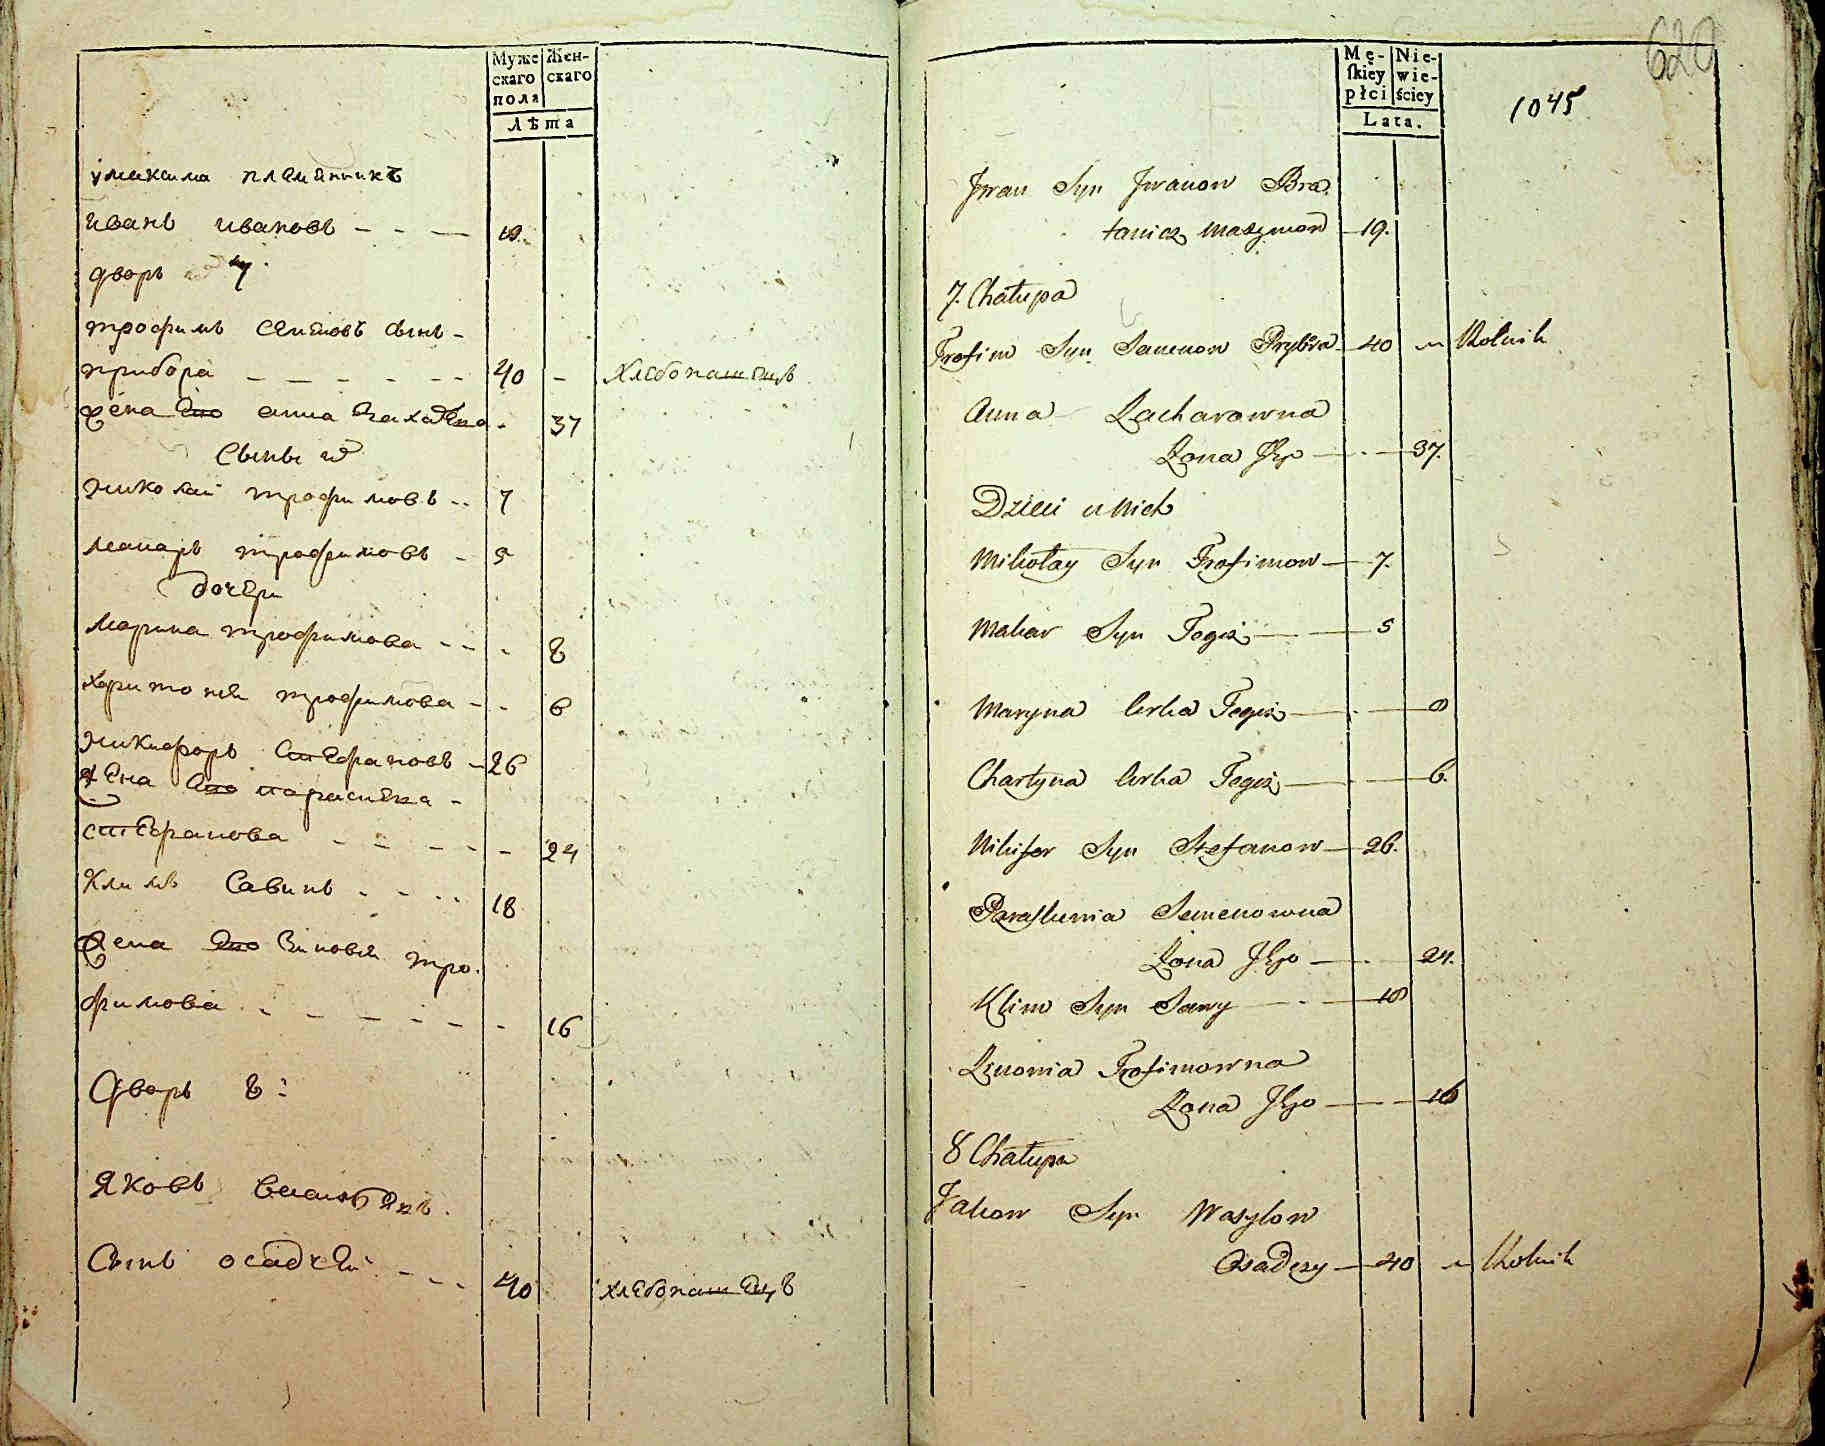 Муже
скаго
пола
Жен-
скаго
Лѣта
умаксима племянникъ
иванъ ивановъ - - - 19.
дворъ 7
трофимъ семеновъ сынъ -
прибора - - - - - - 40 - хлебопашецъ
жена его анна захарова - 37
Сыны
николай трофимовъ - - 7
макаръ трофимовъ - 5
дочери
марина трофимова - - - 8
харитонея трофимова - - 6
никифоръ стефановъ - 26
жена его параскева -
стефанова - - - - - 24
Климъ Савинъ - - - - 18
жена его Зиновея тро-
фимова - - - - - - 16
Дворъ 8:
яковъ
Сынъ осадчей - - - 40 хлебопашецъ
620
Mę-
skiey
płci
Nie-
wie-
ściey
Lata.
1045
Jwan Syn Jwanow Bra-
tanicz Maxymow 19.
7. Chałupa
Trofim Syn Semenow Prybora 40 Rolnik
Anna Zacharowna
Zona Jego 37.
Dzieci u Nich
Mikołay Syn Trofimow 7.
Makar Syn Tegoż 5
Maryna Corka Tegoż 8
Chartyna Corka Tegoż 6.
Nikifor Syn Stefanow 26.
Paraskiewia Semenowna
Zona Jego 24.
Klim Syn Sawy 18
Zinowia Trofimowna
Zona Jego 16
8 Chałupa
Jakow Syn Wasylow
Osadczy 40 Rolnik